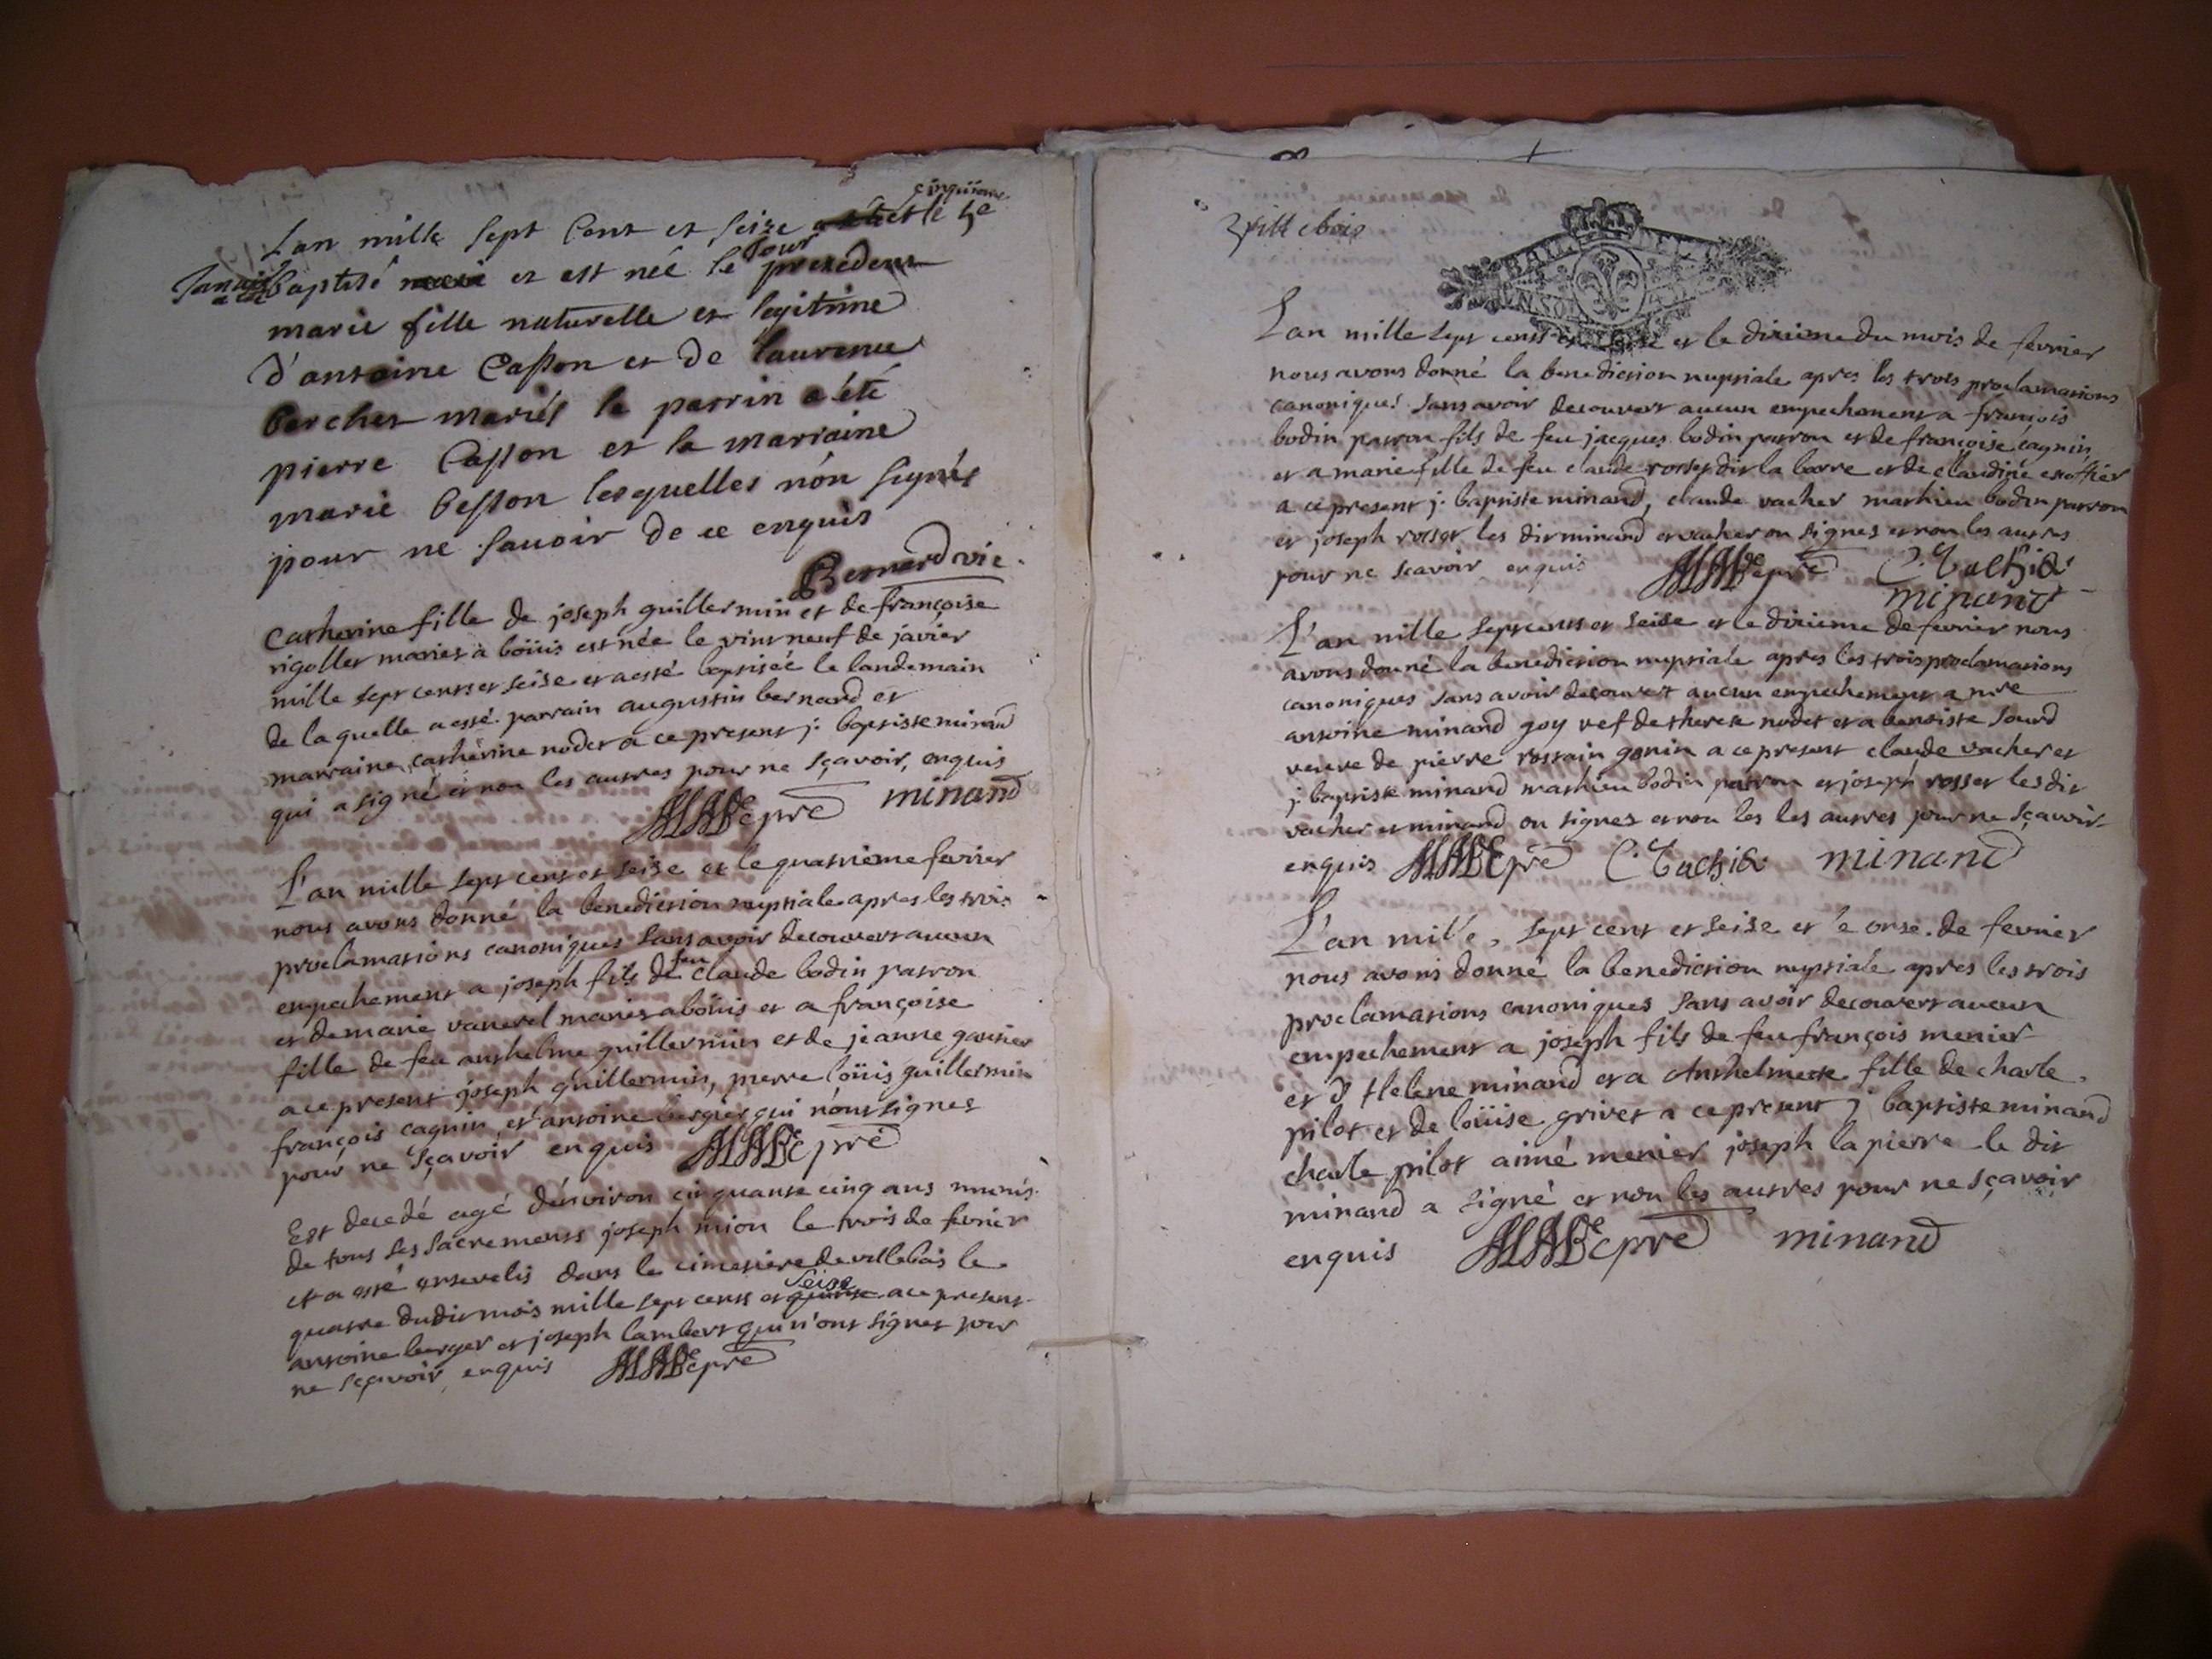 cinquieme
Lan mille sept Cent et seize et le 5e
Janvier a été baptisé et est née le Jour precedent
marie fille naturelle et legitime
d'antoine Casson et de laurence
berchet mariés le parrin a été
pierre Casson et la marraine
marie besson lesquelles nón signés
pour ne savoir de ce enquis
Bernard vic.
Catherine fille de joseph guillermin et de françoise
rigollet mariés à boüis est née le vint neuf de javier
mille sept cents et seise et a esté baptiseé le landemain
de la quelle a esté parrain augustin bernard et
marraine catherine nodet a ce present j. baptiste minand
qui a signé et non les autres pour ne sçavoir, enquis
pre minand
L'an mille sept cent et seise et le quatrieme fevrier
nous avons donné la benediction nuptiale apres les trois
proclamations canoniques sans avoir decouvert aucun
empechement a joseph fils de feu claude bodin patron
et de marie vanerel mariés a boüis et a françoise
fille de feu anthelme guillermin et de jeanne gautier
a ce present joseph guillermin, pierre loüis guillermin
françois cagnin et antoine bergier qui n'ont signes
pour ne sçavoir enquis pre
Est decedé agé d'environ cinquante cinq ans munis
de tous ses sacrements joseph mion le trois de fevrier
et a esté ensevelis dans le cimetiere de villebois le
quatre dudit mois mille sept cents et seise a ce present
antoine berger et joseph lambert qui n'ont signes pour
ne sçavoir enquis pre
villebois
L'an mille sept cent et seise et le dixieme du mois de fevrier
nous avons donné la benediction nuptiale apres les trois proclamations
canoniques sans avoir decouvert aucun empechement a françois
bodin patron fils de feu jacques bodin patron et de françoise cagnin
et a marie fille de feu claude rosset dit la barre et de claudine
a ce present j. baptiste minand, claude vacher mathieu bodin patron
et joseph rosset les dit minand et vacher on signes et non les autres
pour ne scavoir enquis pre C. Vachia
minand
L'an mille sept cents et seise et le dixieme de fevrier nous
avons donné la benediction nuptiale apres les trois proclamations
canoniques sans avoir decouvert aucun empechement a mre
antoine minand goy vef de therese nodet et a benoiste sourd
veuve de pierre rostain gonin a ce present claude vacher et
j. baptiste minand mathieu bodin patron et joseph rosset les dit
vacher et minand on signes et non les les autres pour ne sçavoir
enquis pre C. Vachia minand
L'an mille, sept cent et seise et le onse de fevrier
nous avons donné la benediction nuptiale apres les trois
proclamations canoniques sans avoir decouvert aucun
empechement a joseph fils de feu françois menier
et d helene minand et a Anthelmette fille de charle
pilot et de loüise grivet a ce present j baptiste minand
charle pilot aimé menier joseph la pierre le dit
minand a signé et non les autres pour ne sçavoir
enquis pre minand